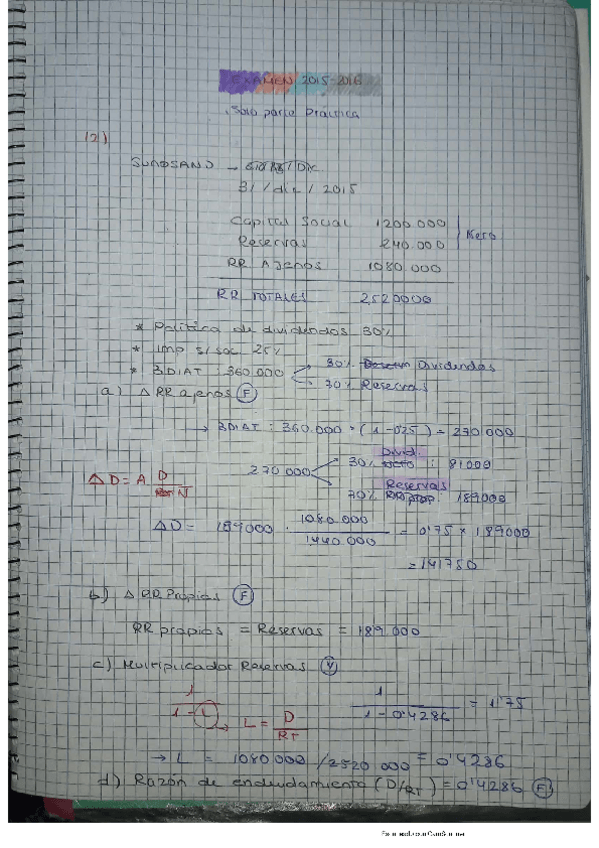 EXAMEN 2015-2016
Solo parte Práctica
12)
31/dic/2015
Capital Social 1200.000
Reservas 240.000
Neto
RR Ajenos 1080.000
RR TOTALES 2520000
* Política de dividendos 30%
* Imp s/soc 25%
* BDIAT : 360.000
30% Dividendos
30% Reservas
a) Δ RR ajenos (F)
→ BDIAT : 360.000 * (1-0'25) = 270.000
270.000
Divid.
30% : 81000
Reservas
70% : 189000
ΔD = A · D / N
ΔD = 189000 · 1080.000 / 1440.000 = 0'75 * 189000
= 141750
b) Δ RR Propios (F)
RR propios = Reservas = 189.000
c) Multiplicador Reservas (V)
1 / 1 - L
L = D / RT
1 / 1 - 0'4286 = 1'75
→ L = 1080000 / 2520 000 = 0'4286
d) Razón de endeudamiento (D/RT) = 0'4286 (F)